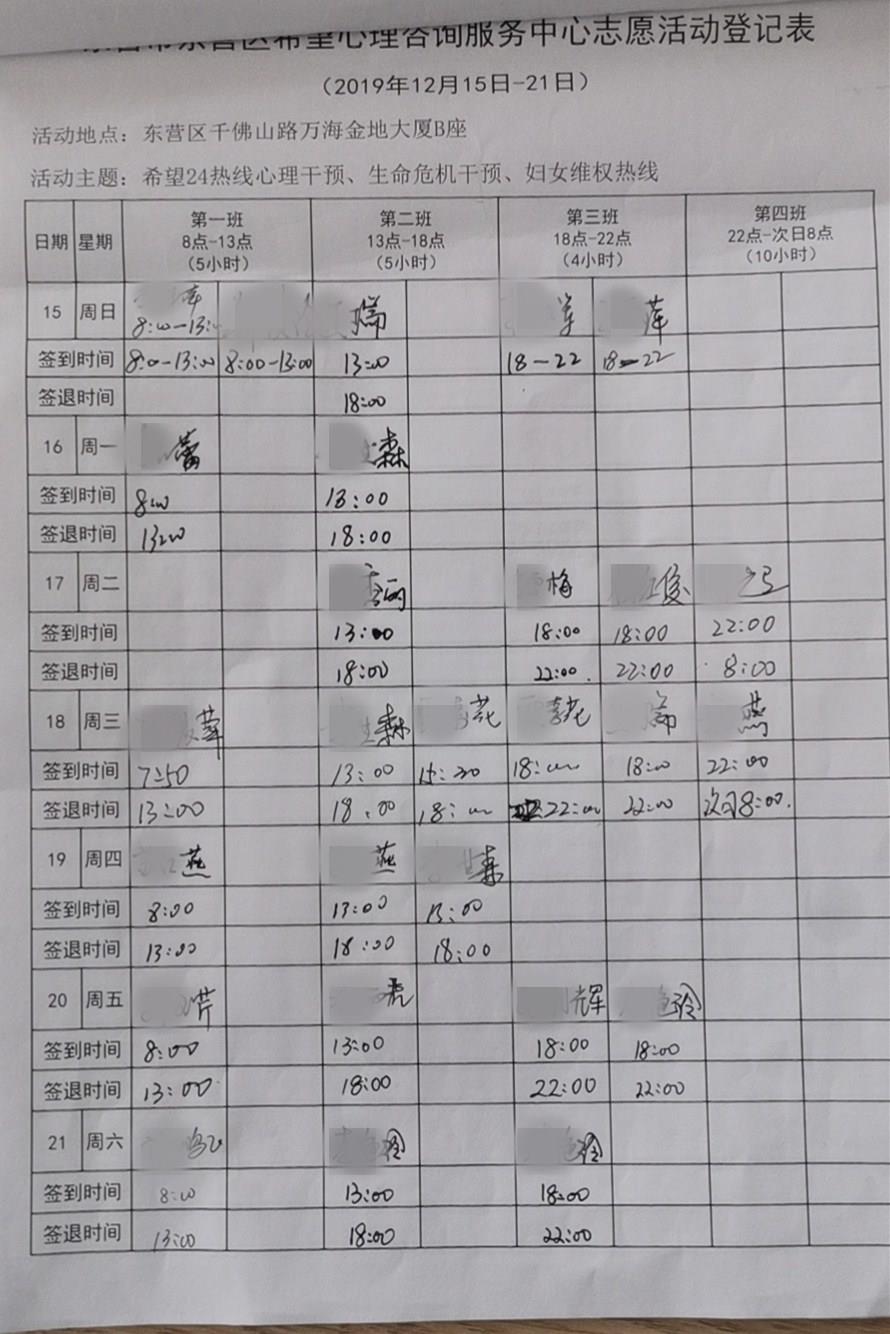 东营市东营区希望心理咨询服务中心志愿活动登记表
（2019年12月15日-21日）
活动地点：东营区千佛山路万海金地大厦B座
活动主题：希望24热线心理干预、生命危机干预、妇女维权热线
日期 星期 第一班 8点-13点 （5小时） 第二班 13点-18点 （5小时） 第三班 18点-22点 （4小时） 第四班 22点-次日8点 （10小时）
15 周日 8:00-13: 瑞 萍
签到时间 8:00-13:00 8:00-13:00 13:00 18-22 18-22
签退时间 18:00
16 周一 蕾 森
签到时间 8:00 13:00
签退时间 13:00 18:00
17 周二 梅 俊
签到时间 13:00 18:00 18:00 22:00
签退时间 18:00 22:00 22:00 8:00
18 周三 森 花 花 瑞 燕
签到时间 7:50 13:00 15:20 18:00 18:00 22:00
签退时间 13:00 18:00 18:00 22:00 22:00 次日8:00.
19 周四 燕 燕 森
签到时间 8:00 13:00 13:00
签退时间 13:00 18:00 18:00
20 周五 芹 虎 辉 玲
签到时间 8:00 13:00 18:00 18:00
签退时间 13:00 18:00 22:00 22:00
21 周六 玲 玲
签到时间 8:00 13:00 18:00
签退时间 13:00 18:00 22:00